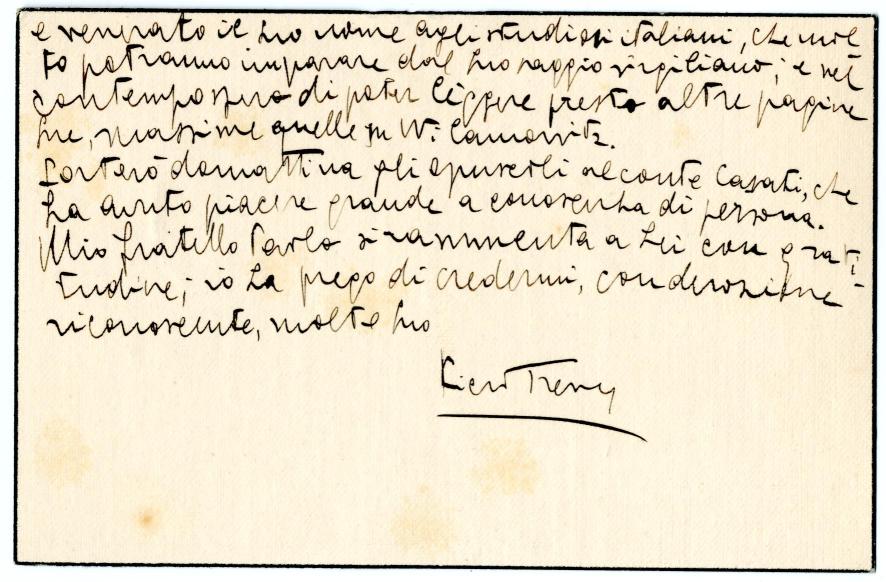 e venerato il Suo nome agli studiosi italiani, che mol
to potranno imparare dal Suo saggio virgiliano; e nel
contempo spero di poter leggere presto altre pagine
Sue, massime quelle su Wilamowitz.
Porterò domattina gli opuscoli al conte Casati, che
ha avuto piacere grande a conoscerLa di persona.
Mio fratello Paolo si rammenta a Lei con grati-
tudine; io La prego di credermi, con devozione
riconoscente, molto Suo
Piero Treves